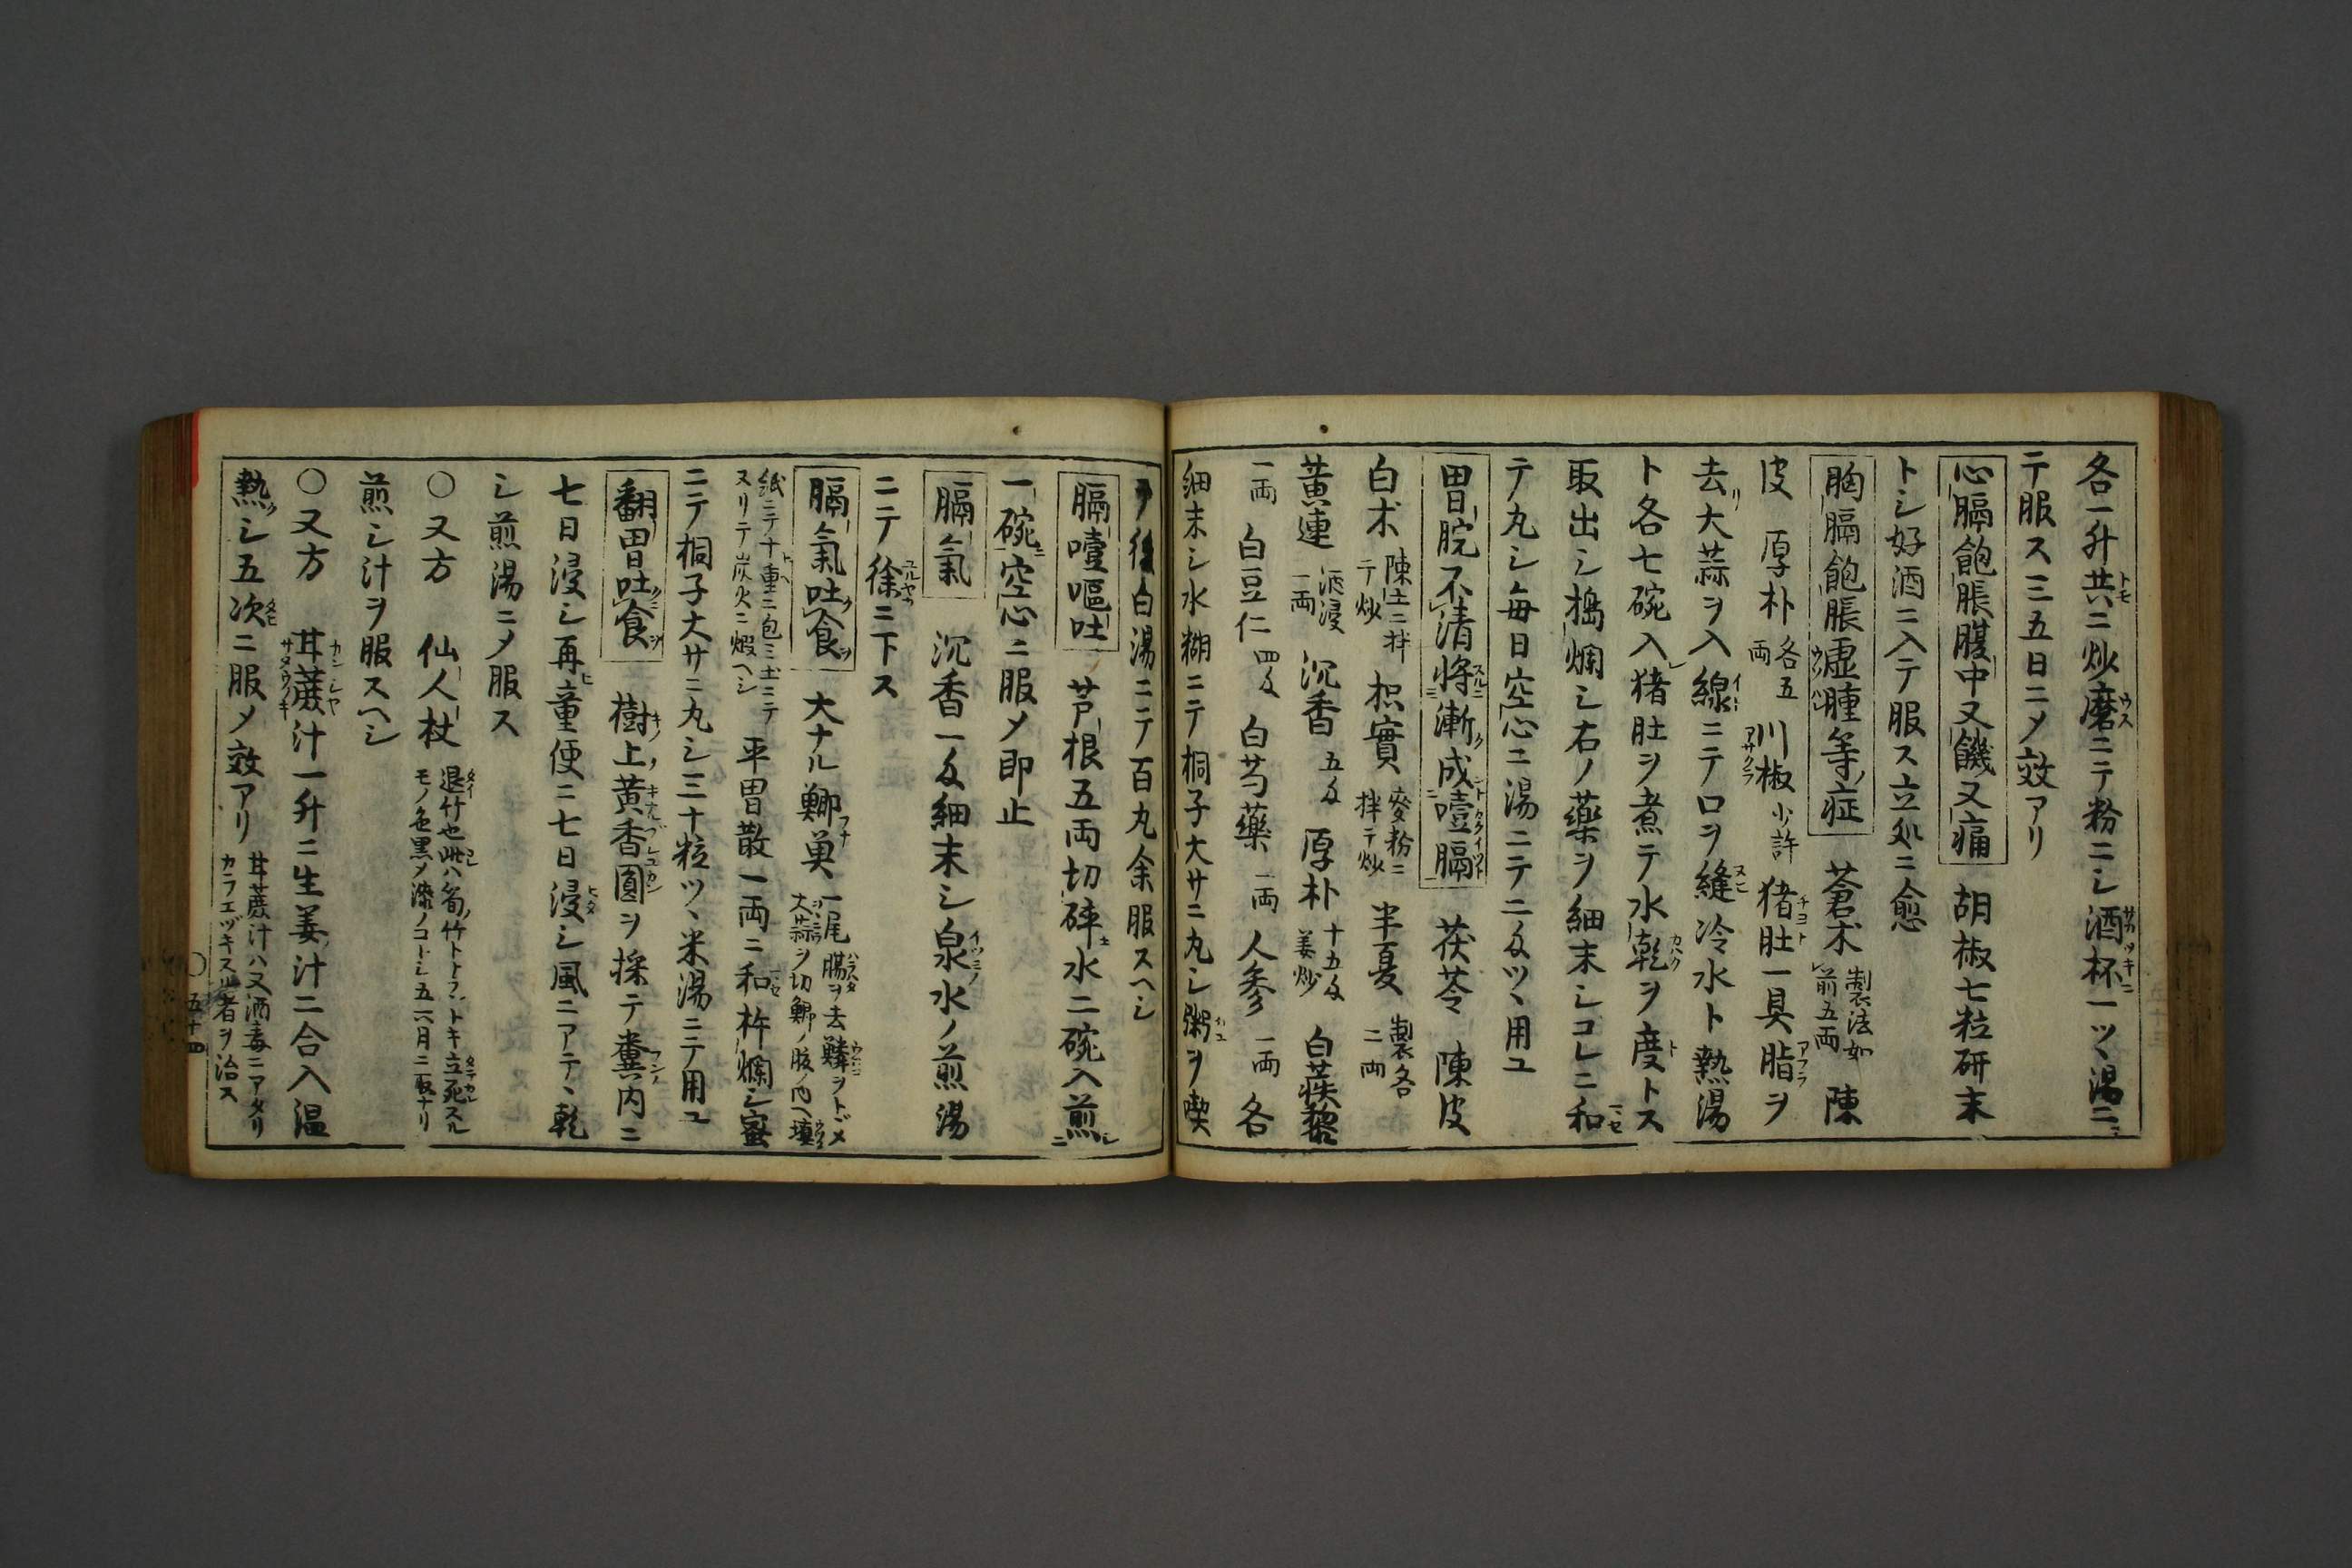 各一升共ニ炒磨ニテ粉ニシ酒杯一ツヽ湯ニ
テ服ス三五日ニメ效アリ
心膈飽脹腹中又饑又痛 胡椒七粒研末
トシ好酒ニ入テ服ス立処ニ愈
胸膈飽脹虚腫等ノ症 蒼朮 製法如前五両 陳
皮 厚朴 各五両 川椒 少許 猪肚一具脂ヲ
去リ大蒜ヲ入線ニテ口ヲ縫冷水ト熱湯
ト各七碗入猪肚ヲ煮テ水乾ヲ度トス
取出シ搗爛シ右ノ藥ヲ細末シコレニ和
テ丸シ毎日空心ニ湯ニテ二匁ツヽ用ユ
胃脘不清將漸成噎膈 茯苓 陳皮
白朮 陳土ニ拌テ炒 枳實 麥粉ニ拌テ炒 半夏 製各二両
黄連 酒浸一両 沉香 五匁 厚朴 十五匁姜炒 白蒺藜
一両 白豆仁 四匁 白芍藥 一両 人参 一両 各
細末シ水糊ニテ桐子大サニ丸シ粥ヲ喫
ヲ後白湯ニテ百丸余服スヘシ
膈噎嘔吐 芦根五両切砕水二碗入煎
一碗空心ニ服メ即止
膈氣 沉香一匁細末シ泉水ノ煎湯
ニテ徐ニ下ス
膈氣吐食 大ナル鯽臾 一尾腸ヲ去鱗ヲトヾメ大蒜ヲ切鯽ノ腹ノ内ヘ填
紙ニテ十重ニ包ミ土ニテヌリテ炭火ニ煅ヘシ 平胃散一両ニ和杵爛シ蜜
ニテ桐子大サニ丸シ三十粒ツヽ米湯ニテ用ユ
翻胃吐食 樹上ノ黄香圓ヲ採テ糞内ニ
七日浸シ再童便ニ七日浸シ風ニアテヽ乾
シ煎湯ニメ服ス
〇又方 仙人杖 退竹也此ハ筍ノ竹トナラントキ立死スルモノ色黒メ漆ノコトシ五六月ニ取ナリ
煎シ汁ヲ服スヘシ
〇又方 甘蔗汁一升ニ生姜ノ汁二合入温
熱シ五次ニ服メ效アリ 甘蔗汁ハ又酒毒ニアタリカラエヅキス者ヲ治ス
〇五十四